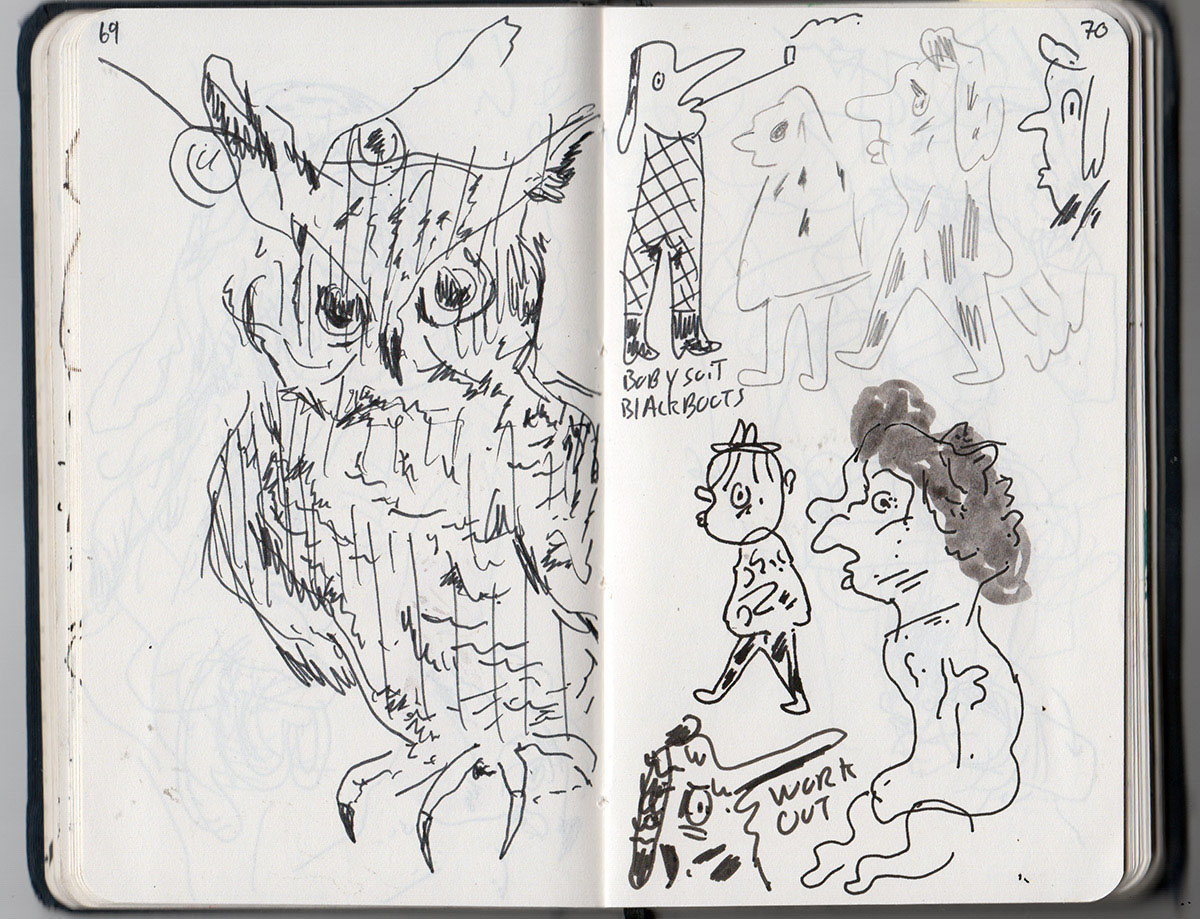 69
70
BOBY SUIT
BLACKBOOTS
WORK
OUT